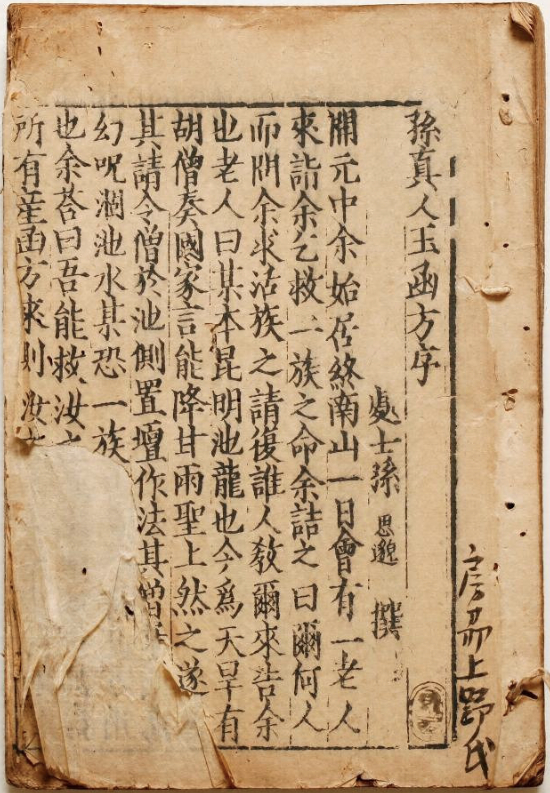 孫真人玉函方序
處士孫思邈撰
開元中余始居終南山一日會有一老人
來詣余乞救一族之命余詰之曰爾何人
而問余求活族之請復誰人教爾來告余
也老人曰某本昆明池龍也今為天旱有
胡僧奏國家言能降甘雨聖上然之遂
其請令僧於池側置壇作法其僧
幻呪涸池水某恐一族
也余荅曰吾能救汝
所有龍函方來則汝
上野氏